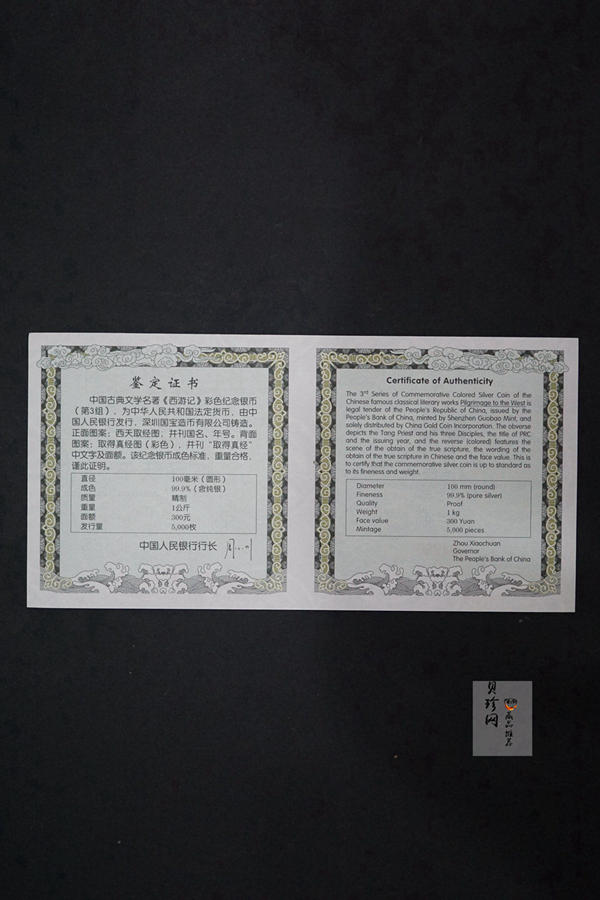 鉴定证书
中国古典文学名著《西游记》彩色纪念银币
（第3组），为中华人民共和国法定货币，由中
国人民银行发行，深圳国宝造币有限公司铸造。
正面图案：西天取经图，并刊国名、年号。背面
图案：取得真经图（彩色），并刊“取得真经”
中文字及面额。该纪念银币成色标准、重量合格，
谨此证明。
直径 100毫米（圆形）
成色 99.9%（含纯银）
质量 精制
重量 1公斤
面额 300元
发行量 5,000枚
中国人民银行行长
Certificate of Authenticity
The 3rd Series of Commemorative Colored Silver Coin of the
Chinese famous classical literary works Pilgrimage to the West is
legal tender of the People's Republic of China, issued by the
People's Bank of China, minted by Shenzhen Guobao Mint, and
solely distributed by China Gold Coin Incorporation. The obverse
depicts the Tang Priest and his three Disciples, the title of PRC
and the issuing year, and the reverse (colored) features the
scene of the obtain of true scripture, the wording of the
obtain of true scripture in Chinese and the face value. This is
to certify that the commemorative silver coin is up to standard as
to its fineness and weight.
Diameter 100 mm (round)
Fineness 99.9% (pure silver)
Quality Proof
Weight 1 kg
Face value 300 Yuan
Mintage 5,000 pieces
Zhou Xiaochuan
Governor
The People's Bank of China
珍网
商品推荐